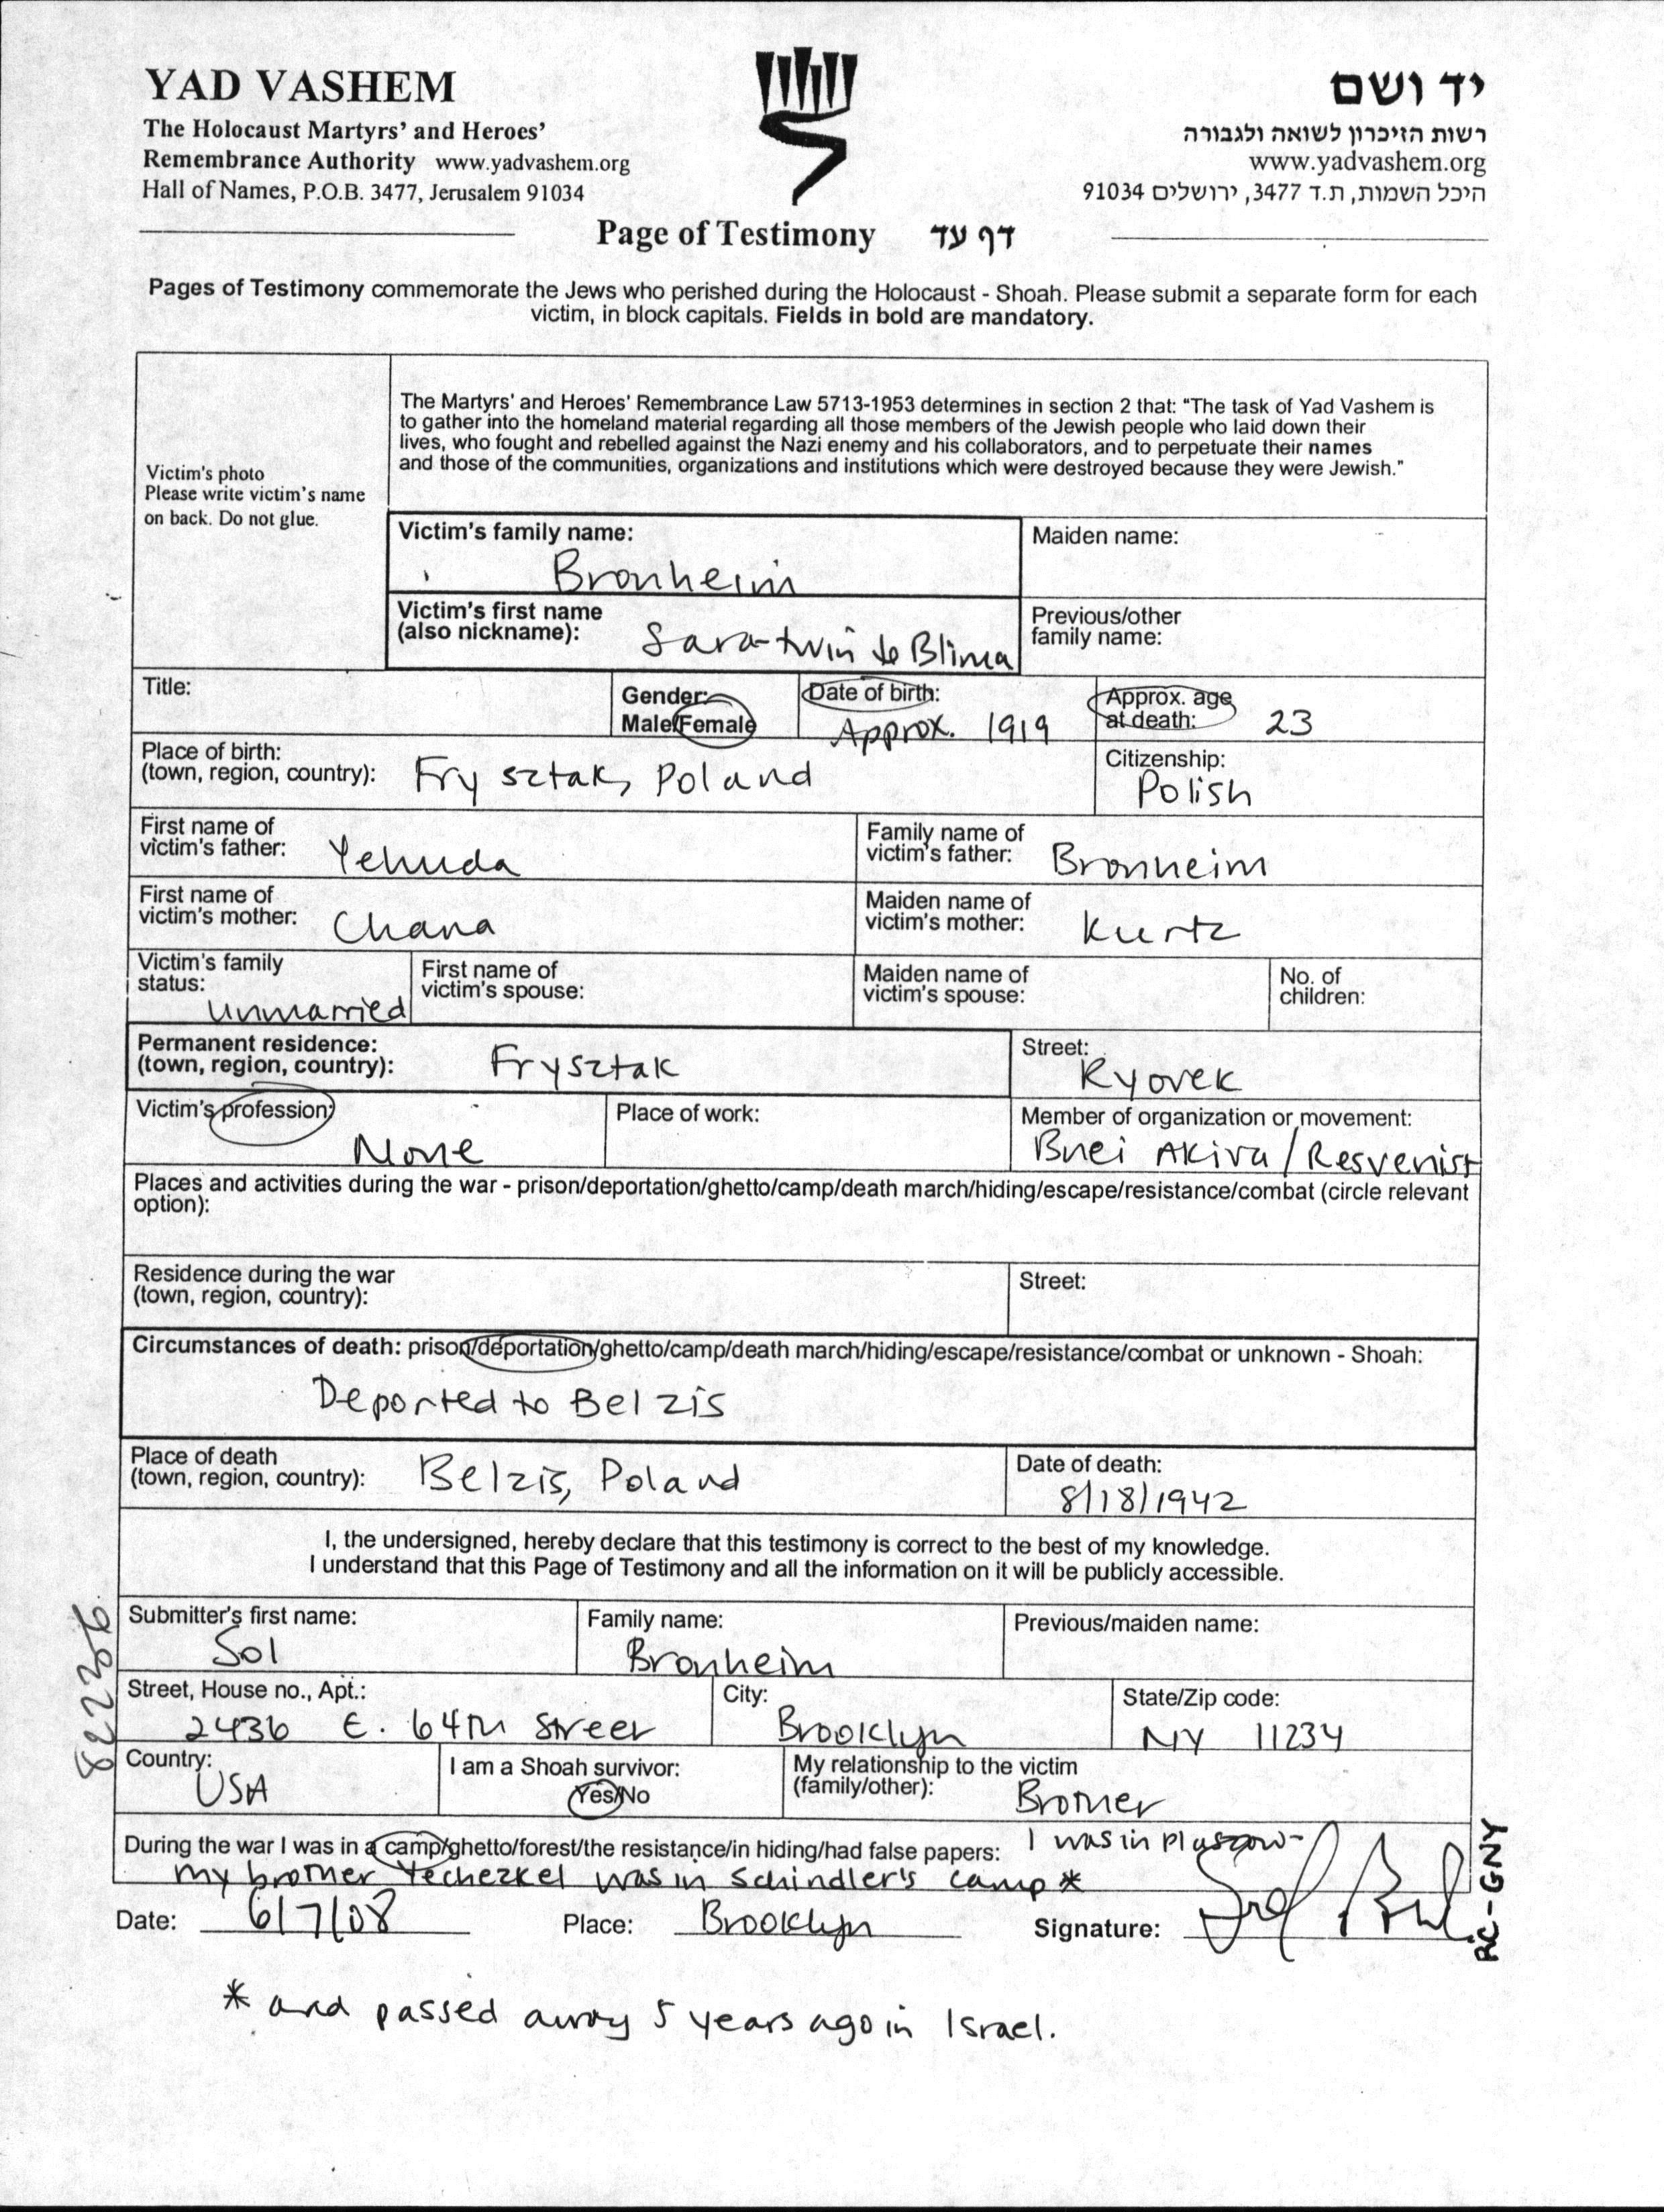 YAD VASHEM
The Holocaust Martyrs' and Heroes'
Remembrance Authority www.yadvashem.org
Hall of Names, P.O.B. 3477, Jerusalem 91034
יד ושם
רשות הזיכרון לשואה ולגבורה
www.yadvashem.org
היכל השמות, ת.ד 3477, ירושלים 91034
Page of Testimony דף עד
Pages of Testimony commemorate the Jews who perished during the Holocaust - Shoah. Please submit a separate form for each
victim, in block capitals. Fields in bold are mandatory.
The Martyrs' and Heroes' Remembrance Law 5713-1953 determines in section 2 that: "The task of Yad Vashem is
to gather into the homeland material regarding all those members of the Jewish people who laid down their
lives, who fought and rebelled against the Nazi enemy and his collaborators, and to perpetuate their names
and those of the communities, organizations and institutions which were destroyed because they were Jewish."
Victim's photo
Please write victim's name
on back. Do not glue.
Victim's family name:
Bronheim
Maiden name:
Victim's first name
(also nickname): Sara-twin to Blima
Previous/other
family name:
Title:
Gender:
Male/Female
Date of birth:
Approx. 1919
Approx. age
at death: 23
Place of birth:
(town, region, country): Frysztak, Poland
Citizenship:
Polish
First name of
victim's father: Yehuda
Family name of
victim's father: Bronheim
First name of
victim's mother: Chana
Maiden name of
victim's mother: Kurtz
Victim's family
status:
Unmarried
First name of
victim's spouse:
Maiden name of
victim's spouse:
No. of
children:
Permanent residence:
(town, region, country): Frysztak
Street:
Ryovek
Victim's profession:
None
Place of work:
Member of organization or movement:
Bnei Akiva/Resvenist
Places and activities during the war - prison/deportation/ghetto/camp/death march/hiding/escape/resistance/combat (circle relevant
option):
Residence during the war
(town, region, country):
Street:
Circumstances of death: prison/deportation/ghetto/camp/death march/hiding/escape/resistance/combat or unknown - Shoah:
Deported to Belzis
Place of death
(town, region, country): Belzis, Poland
Date of death:
8/18/1942
I, the undersigned, hereby declare that this testimony is correct to the best of my knowledge.
I understand that this Page of Testimony and all the information on it will be publicly accessible.
Submitter's first name:
Sol
Family name:
Bronheim
Previous/maiden name:
Street, House no., Apt.:
2436 E. 64th Street
City:
Brooklyn
State/Zip code:
NY 11234
Country:
USA
I am a Shoah survivor:
Yes/No
My relationship to the victim
(family/other): Brother
During the war I was in a camp/ghetto/forest/the resistance/in hiding/had false papers: I was in Plaszow-
my brother Yechezkel was in Schindler's camp *
Date: 6/7/08
Place: Brooklyn
Signature:
* and passed away 5 years ago in Israel.
RC-GNY